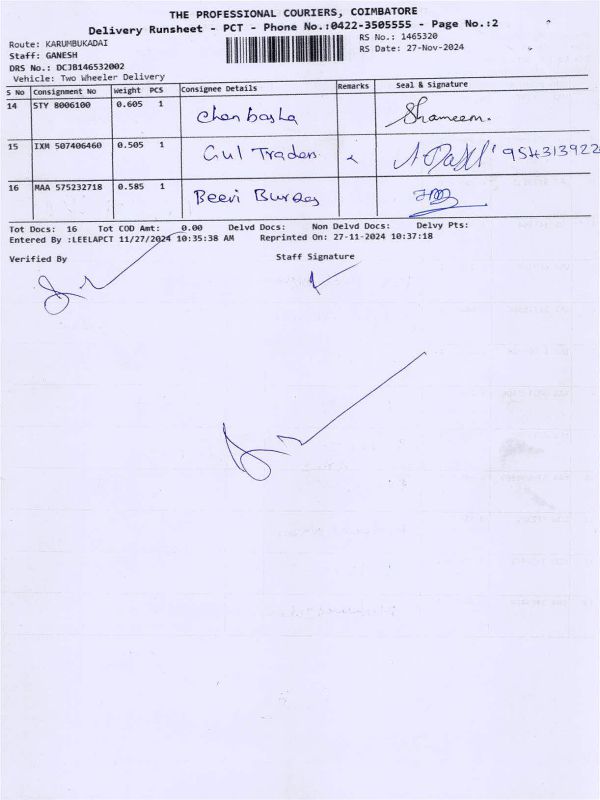 THE PROFESSIONAL COURIERS, COIMBATORE
Delivery Runsheet - PCT - Phone No.:0422-3505555 - Page No.:2
Route: KARUMBUKADAI
RS No.: 1465320
Staff: GANESH
RS Date: 27-Nov-2024
DRS No.: DCJB146532002
Vehicle: Two Wheeler Delivery
S No Consignment No Weight PCS Consignee Details Remarks Seal & Signature
14 STY 8006100 0.605 1 Chan basha Shameem.
15 IXM 507406460 0.505 1 Gul Traders
16 MAA 575232718 0.585 1 Beevi
Tot Docs: 16 Tot COD Amt: 0.00 Delvd Docs: Non Delvd Docs: Delvy Pts:
Entered By :LEELAPCT 11/27/2024 10:35:38 AM Reprinted On: 27-11-2024 10:37:18
Verified By Staff Signature